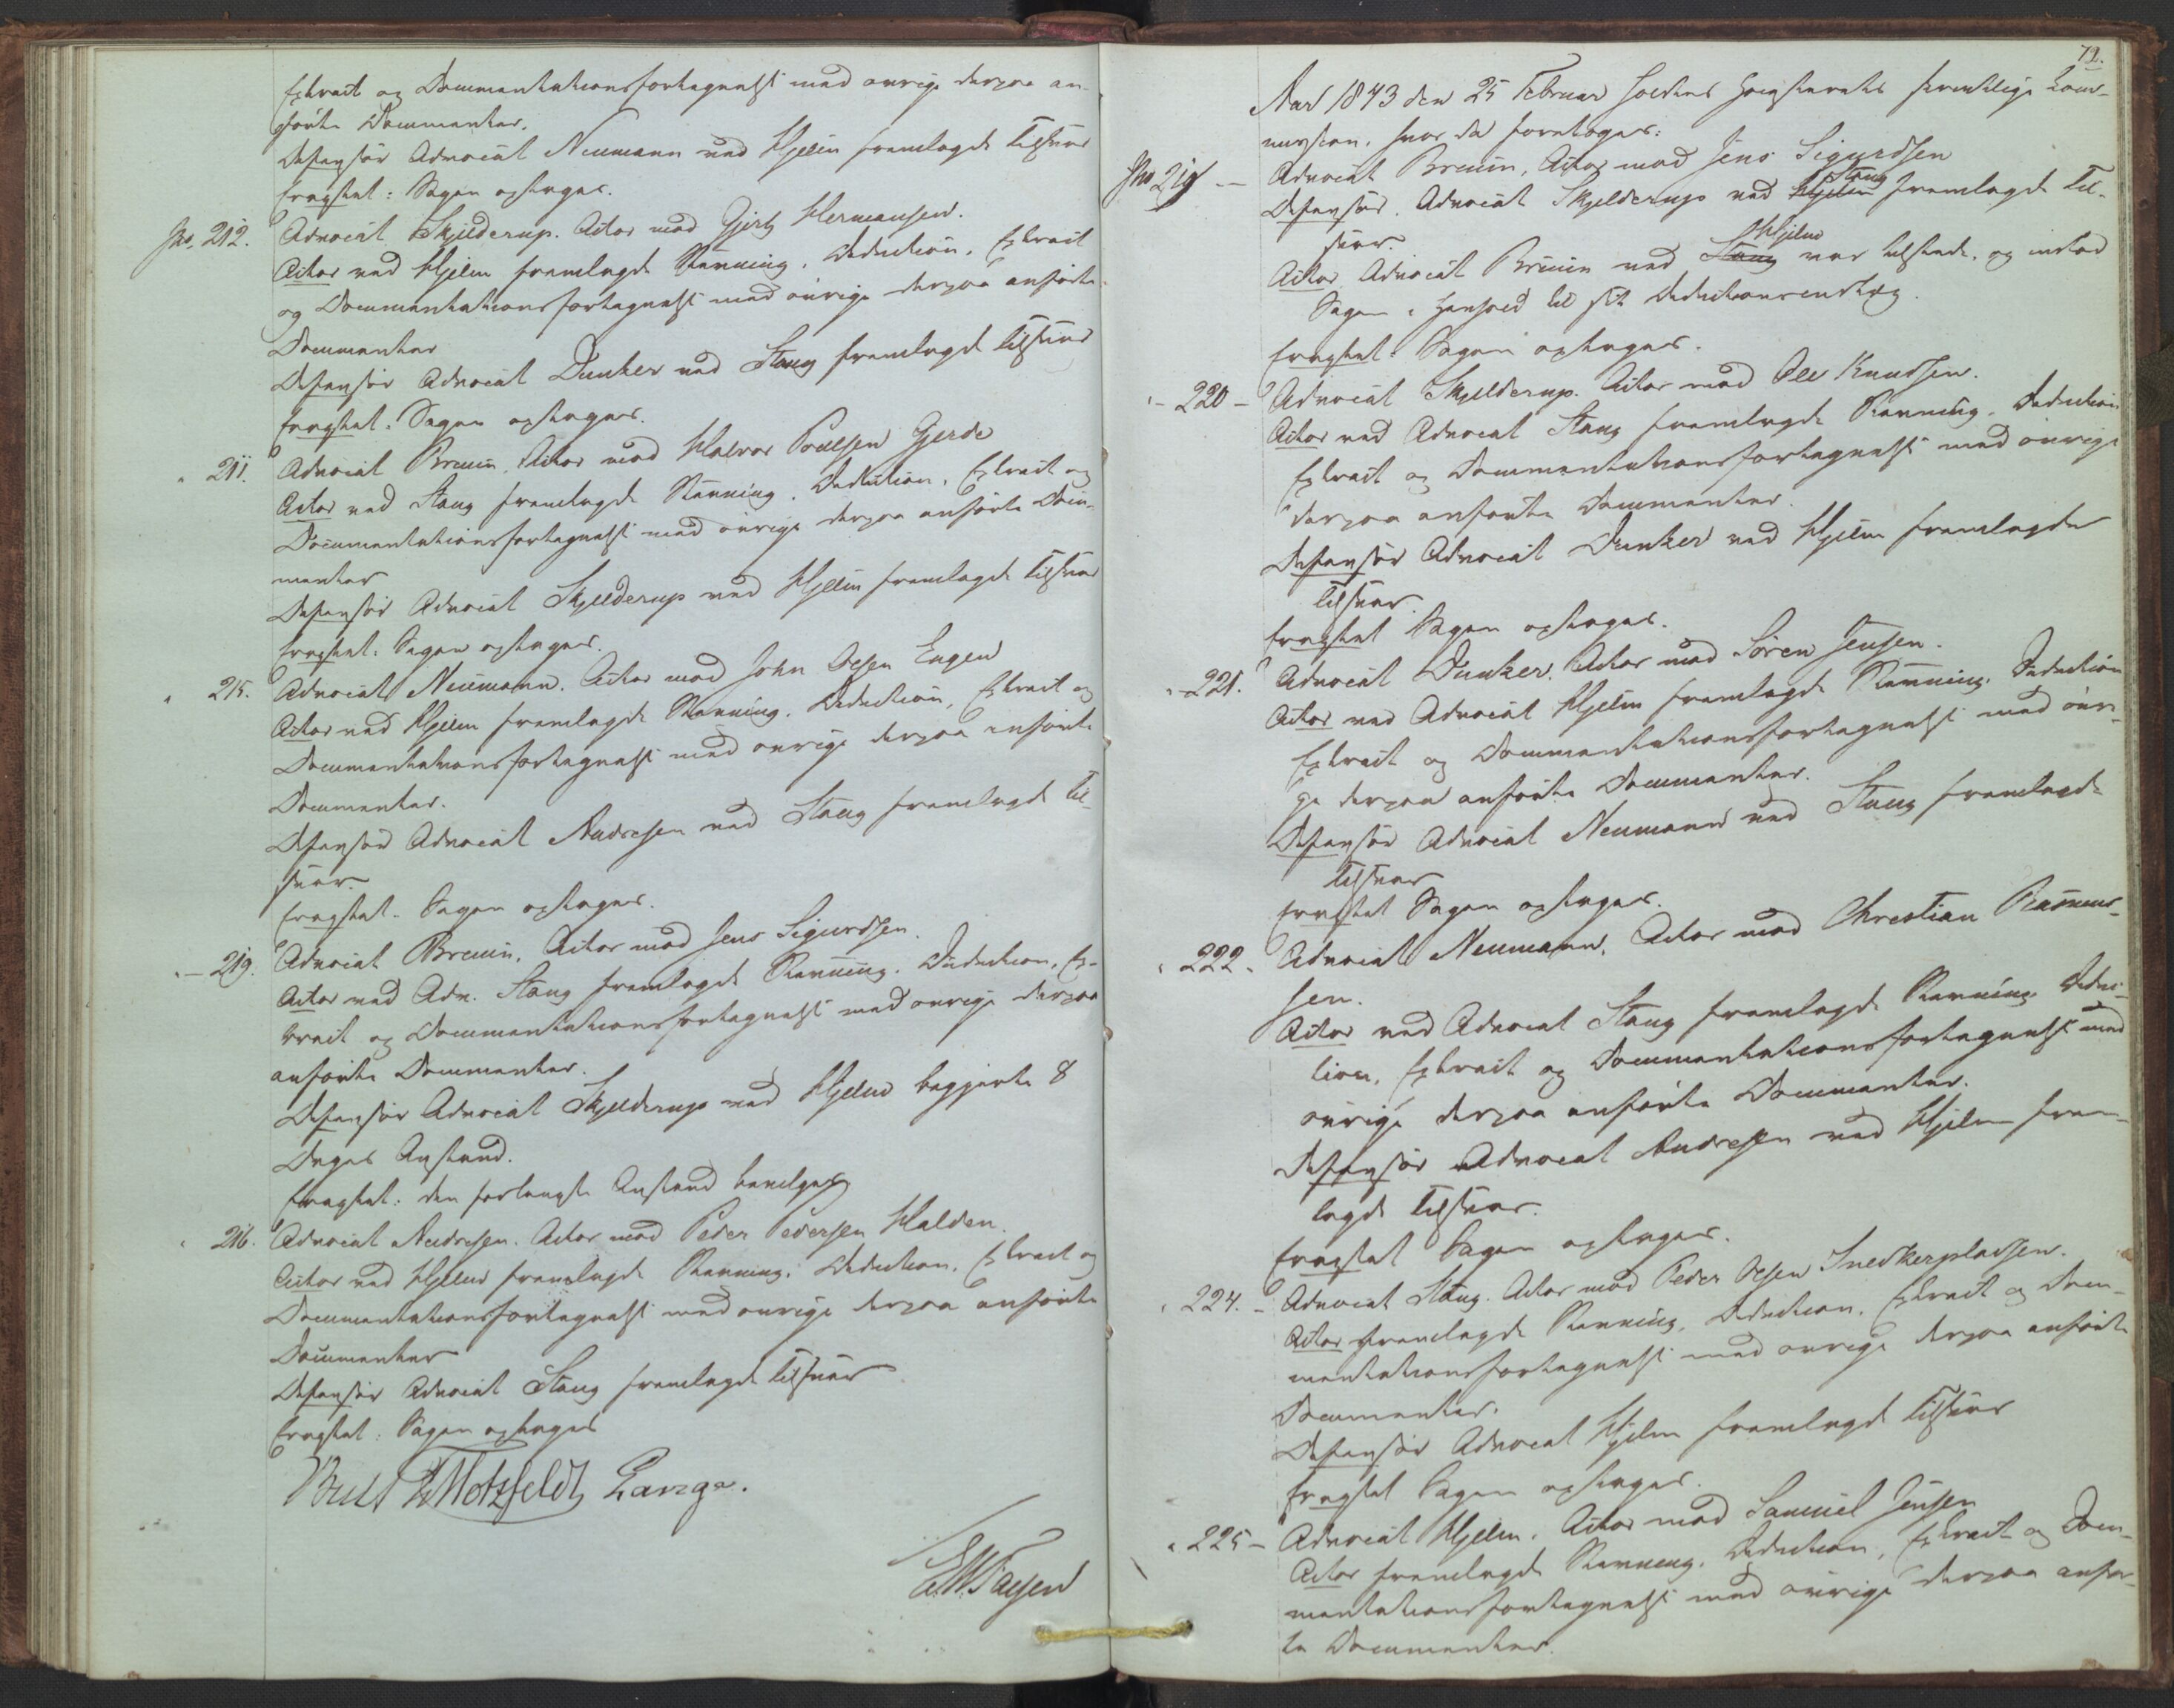 Extract og Documentationsfortegnelse med øvrige derpaa an-
førte Documenter.
Defensor Advocat Neumann ved Hjelm fremlagde Tilsvar
Eragtet: Sagen optages.
No. 212. Advocat Skjelderup. Actor mod Gjert Hermansen.
Actor ved Hjelm fremlagde Stævning, Deduction, Extract
og Documentationsfortegnelse med øvrige derpaa anførte
Documenter
Defensor Advocat Dunker ved Stang fremlagde Tilsvar
Eragtet: Sagen optages.
" 211. Advocat Bruun, Actor mod Halvor Poulsen Gjerde
Actor ved Stang fremlagde Stævning, Deduction, Extract og
Documentationsfortegnelse med øvrige derpaa anførte Docu-
menter
Defensor Advocat Skjelderup ved Hjelm fremlagde Tilsvar
Eragtet: Sagen optages.
" 215. Advocat Neumann. Actor mod John Olsen Engen
Actor ved Hjelm fremlagde Stævning, Deduction, Extract og
Documentationsfortegnelse med øvrige derpaa anførte
Documenter.
Defensor Advocat Andresen ved Stang fremlagde Til-
svar.
Eragtet. Sagen optages.
" - 219. Advocat Bruun, Actor mod Jens Sigurdsen.
Actor ved Adv. Stang fremlagde Stævning, Deduction, Ex-
tract og Documentationsfortegnelse med øvrige derpaa
anførte Documenter.
Defensor Advocat Skjelderup ved Hjelm begjærte 8
Dages Anstand.
Eragtet: den forlangte Anstand bevilges
" 216. Advocat Andresen. Actor mod Peder Pedersen Halden.
Actor ved Hjelm fremlagde Stævning, Deduction, Extract og
Documentationsfortegnelse med øvrige derpaa anførte
Documenter
Defensor Advocat Stang fremlagde Tilsvar
Eragtet: Sagen optages
Bull Motzfeldt Lange.
72.
Aar 1843 den 25 Februar holdtes Høiesterets skriftlige Com-
mission, hvor da foretoges:
No 219 - Advocat Bruun, Actor mod Jens Sigurdsen
Stang
Defensor, Advocat Skjelderup ved Hjelm fremlagde Til-
svar.
Hjelm
Actor Advocat Bruun ved Stang var tilstede, og indlod
Sagen i Henhold til sit Deductionsindlæg.
Eragtet: Sagen optages.
" - 220 - Advocat Skjelderup. Actor mod Ole Knudsen.
Actor ved Advocat Stang fremlagde Stævning, Deduction
Extract og Documentationsfortegnelse med øvrige
derpaa anførte Documenter.
Defensor Advocat Dunker ved Hjelm fremlagde
Tilsvar.
Eragtet Sagen optages.
" - 221. Advocat Dunker, Actor mod Sören Jensen.
Actor ved Advocat Hjelm fremlagde Stævning, Deduction
Extract og Documentationsfortegnelse med øvri-
ge derpaa anførte Documenter.
Defensor Advocat Neumann ved Stang fremlagde
Tilsvar
Eragtet Sagen optages.
" 222 - Advocat Neumann, Actor mod Christian Rasmus-
sen.
Actor ved Advocat Stang fremlagde Stævning Deduc-
tion, Extract og Documentationsfortegnelse med
øvrige derpaa anførte Documenter.
Defensor Advocat Andresen ved Hjelm frem-
lagde Tilsvar.
Eragtet Sagen optages.
" 224. - Advocat Stang. Actor mod Peder Olsen Snedkerpladsen.
Actor fremlagde Stævning, Deduction, Extract og Docu-
mentationsfortegnelse med øvrige derpaa anførte
Documenter.
Defensor Advocat Hjelm fremlagde Tilsvar
Eragtet Sagen optages.
" 225 - Advocat Hjelm, Actor mod Samuel Jensen
Actor fremlagde Stævning, Deduction, Extract og Docu-
mentationsfortegnelse med øvrige derpaa anfør-
te Documenter.